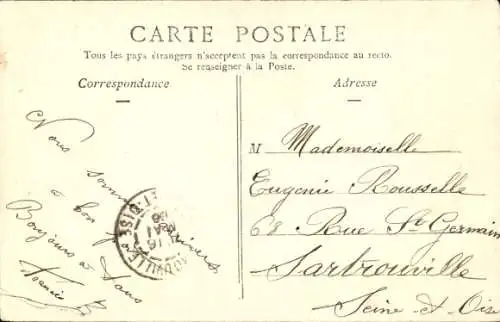 CARTE POSTALE
Tous les pays étrangers n'acceptent pas la correspondance au recto.
Se renseigner à la Poste.
Correspondance
Adresse
Nous sommes
à bon
Bonjours à
Tous
M Mademoiselle
Eugenie Rousselle
68 Rue St Germain
Sartrouville
Seine et Oise